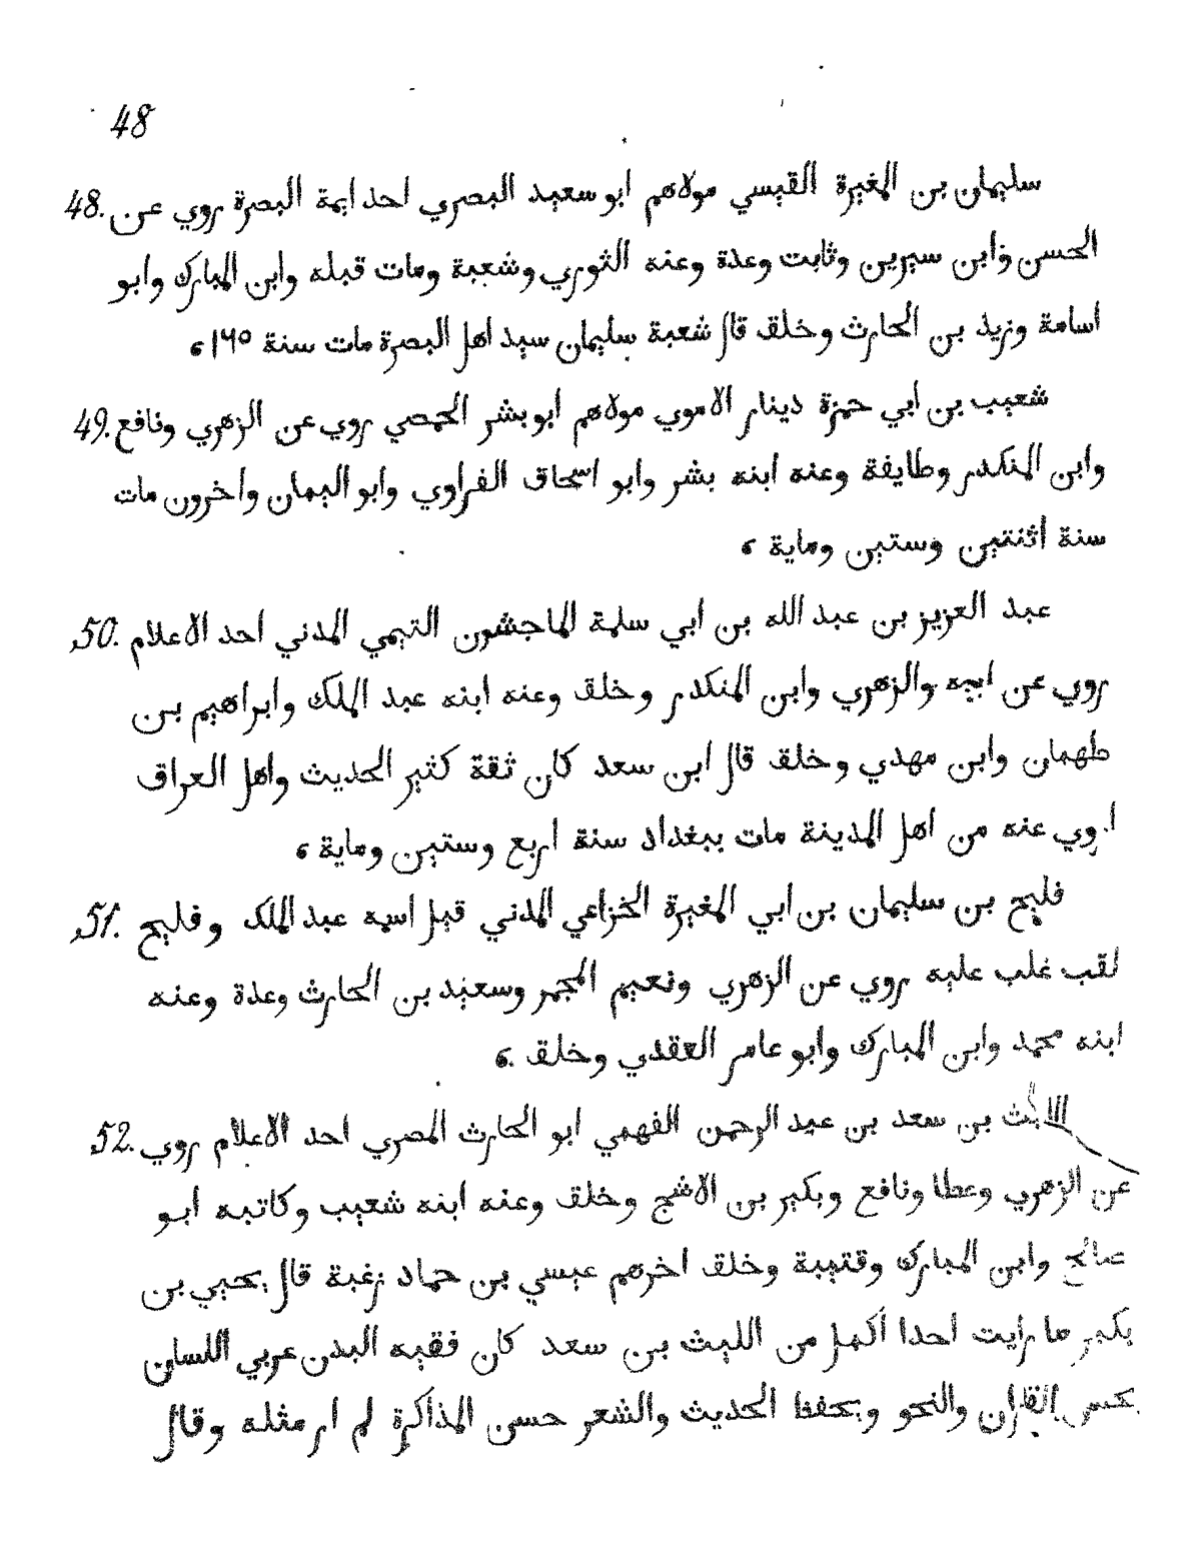 48
48. سليمان بن المغيرة القيسي مولاهم ابو سعيد البصري احد ايمة البصرة روي عن
الحسن وابن سيرين وثابت وعدة وعنه الثوري وشعبة ومات قبله وابن المبارك وابو
اسامة وزيد بن الحارث وخلق قال شعبة سليمان سيد اهل البصرة مات سنة ١٦٥ ۵
49. شعيب بن ابي حمزة دينار الاموي مولاهم ابو بشر الحمصي روي عن الزهري ونافع
وابن المنكدر وطايفة وعنه ابنه بشر وابو اسحاق الفراوي وابو اليمان واخرون مات
سنة اثنتين وستين وماية ۵
50. عبد العزيز بن عبد الله بن ابي سلمة الماجشون التيمي المدني احد الاعلام
روي عن ابيه والزهري وابن المنكدر وخلق وعنه ابنه عبد الملك وابراهيم بن
طهمان وابن مهدي وخلق قال ابن سعد كان ثقة كثير الحديث واهل العراق
اروي عنه من اهل المدينة مات ببغداد سنة اربع وستين وماية ۵
51. فليح بن سليمان بن ابي المغيرة الخزاعي المدني قيل اسمه عبد الملك وفليح
لقب غلب عليه روي عن الزهري ونعيم المجمر وسعيد بن الحارث وعدة وعنه
ابنه محمد وابن المبارك وابو عامر العقدي وخلق ۵
52. الليث بن سعد بن عبد الرحمن الفهمي ابو الحارث المصري احد الاعلام روي
عن الزهري وعطا ونافع وبكير بن الاشج وخلق وعنه ابنه شعيب وكاتبه ابو
صالح وابن المبارك وقتيبة وخلق اخرهم عيسي بن حماد زغبة قال يحيي بن
بكير ما رايت احدا اكمل من الليث بن سعد كان فقيه البدن عربي اللسان
يحسن القران والنحو ويحفظ الحديث والشعر حسن المذاكرة لم ار مثله وقال